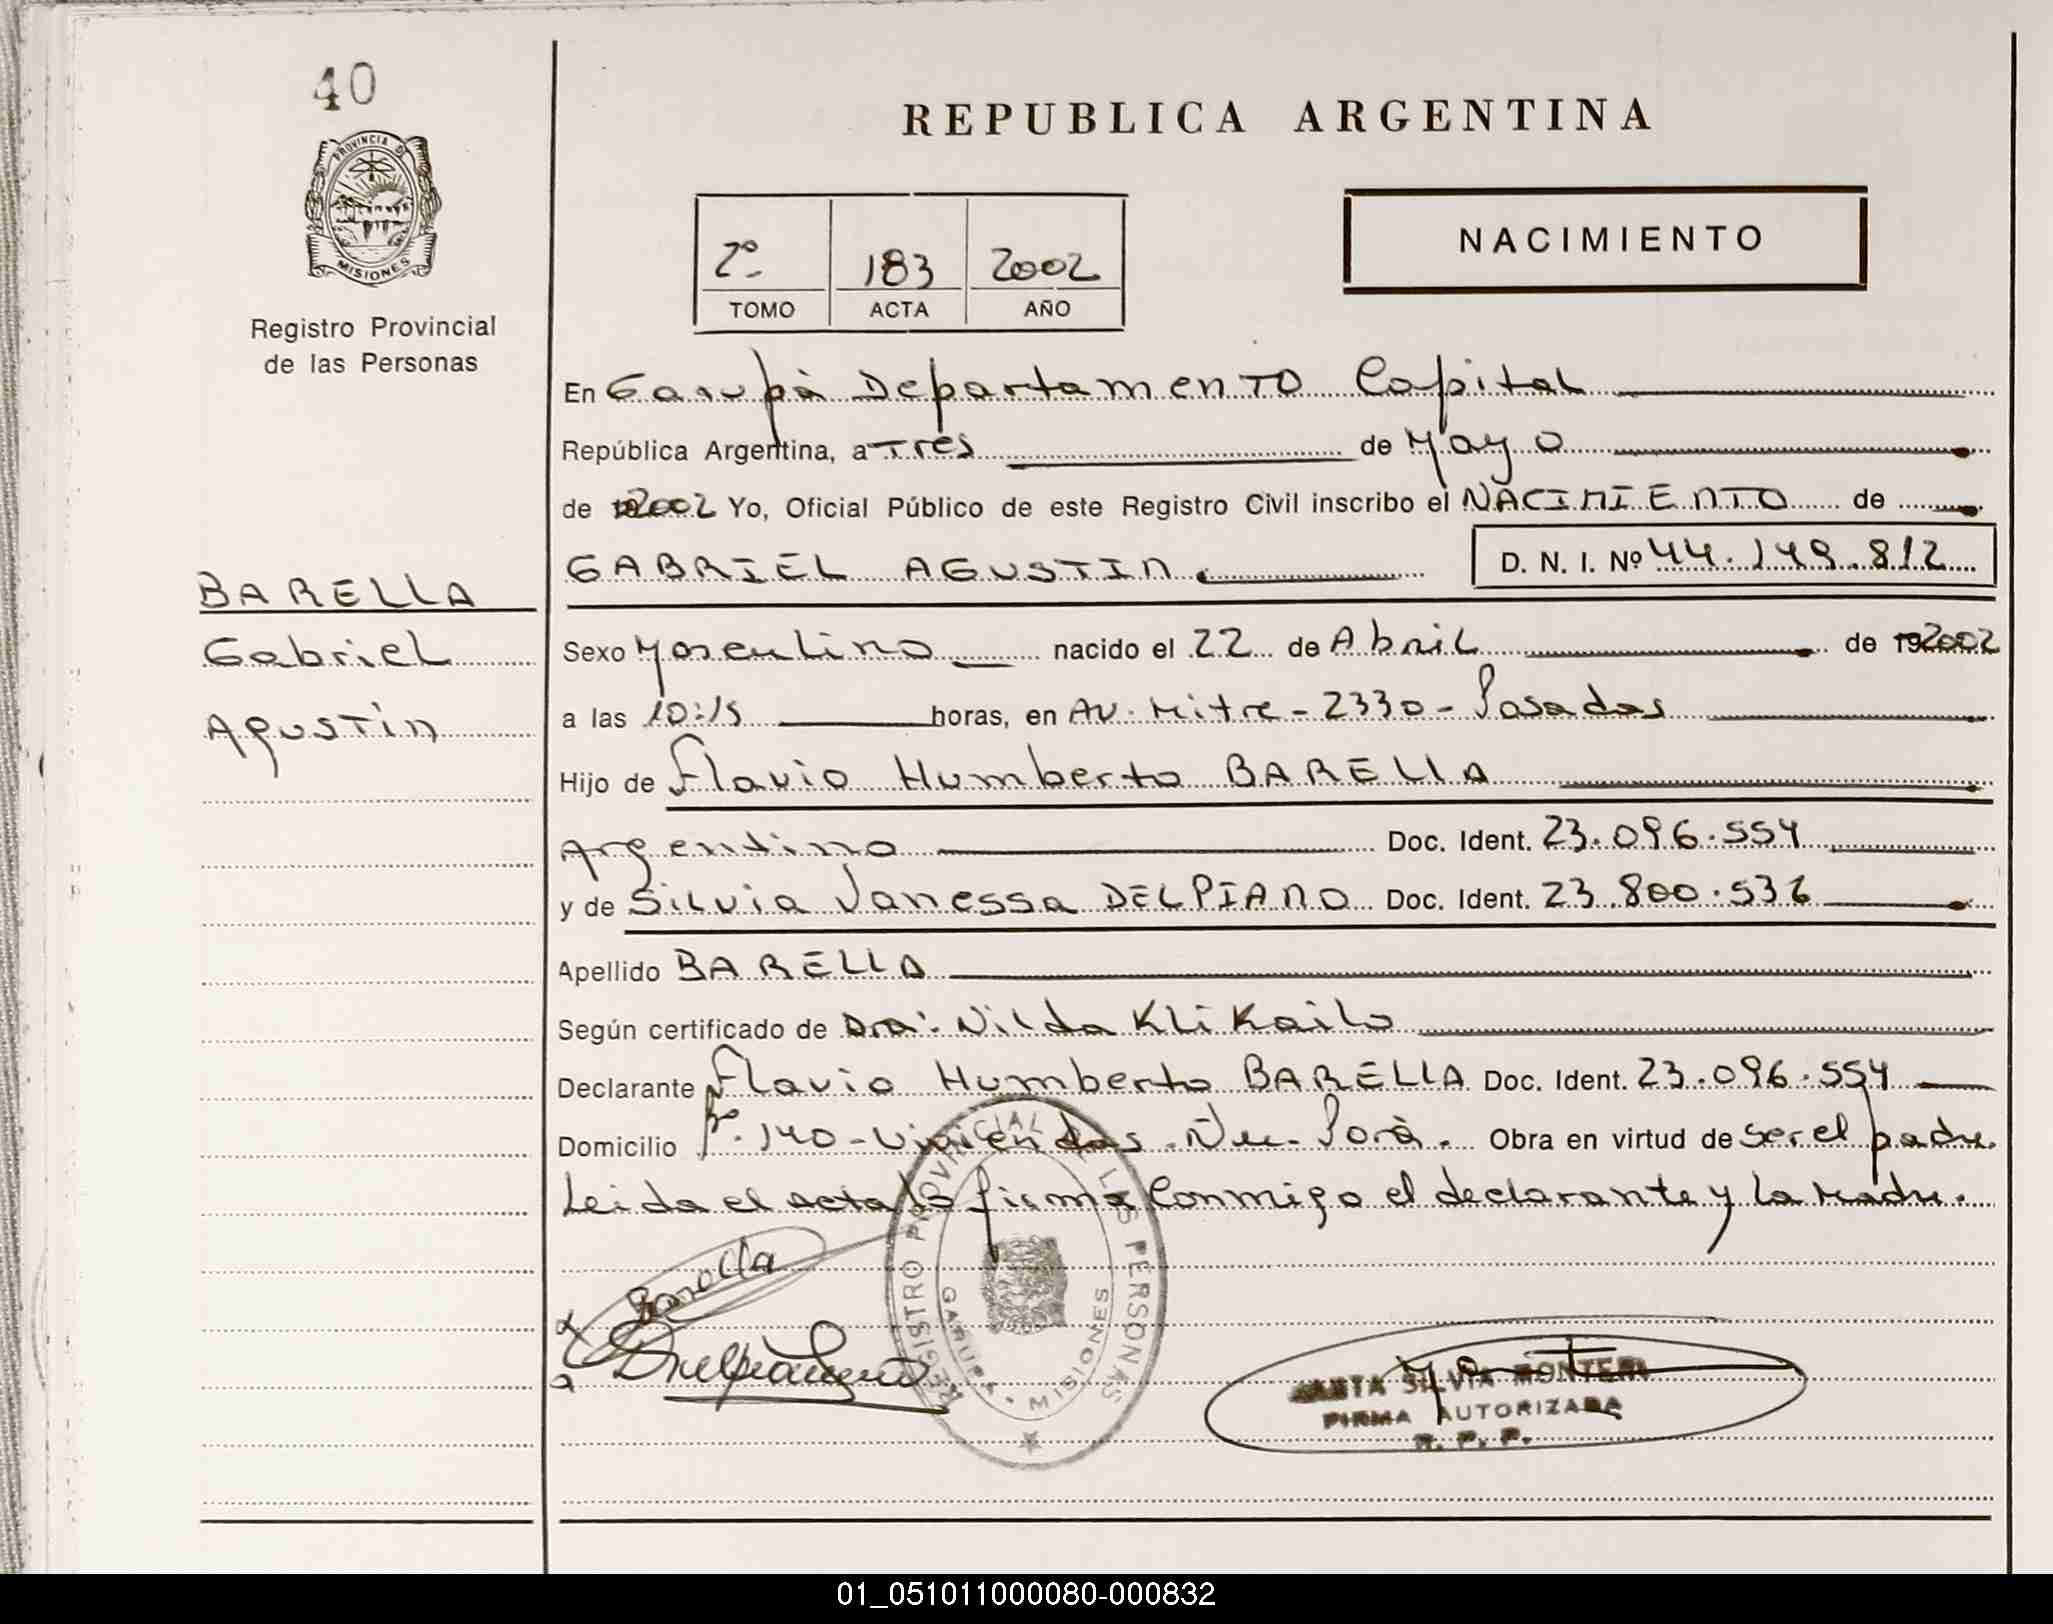 40
PROVINCIA DE
MISIONES
Registro Provincial
de las Personas
BARELLA
Gabriel
Agustin
REPUBLICA ARGENTINA
2º 183 2002
TOMO ACTA AÑO
NACIMIENTO
En Garupà Departamento Capital
República Argentina, a Tres de Mayo
de 2002 Yo, Oficial Público de este Registro Civil inscribo el NACIMIENTO de
GABRIEL AGUSTIN D. N. I. Nº 44.149.812
Sexo Masculino nacido el 22 de Abril de 192002
a las 10:15 horas, en AV. Mitre - 2330 - Posadas
Hijo de Flavio Humberto BARELLA
Argentino Doc. Ident. 23.096.554
y de Silvia Vanessa DELPIANO Doc. Ident. 23.800.536
Apellido BARELLA
Según certificado de Dra. Nilda Klikailo
Declarante Flavio Humberto BARELLA Doc. Ident. 23.096.554
Domicilio Bº. 140 - Viviendas - Ñu - Porà. Obra en virtud de ser el padre.
Leida el acta la firma conmigo el declarante y la Madre.
Barella
REGISTRO PROVINCIAL DE LAS PERSONAS
GARUPA - MISIONES
SILVIA MONTERI
FIRMA AUTORIZADA
R. P. P.
01_051011000080-000832